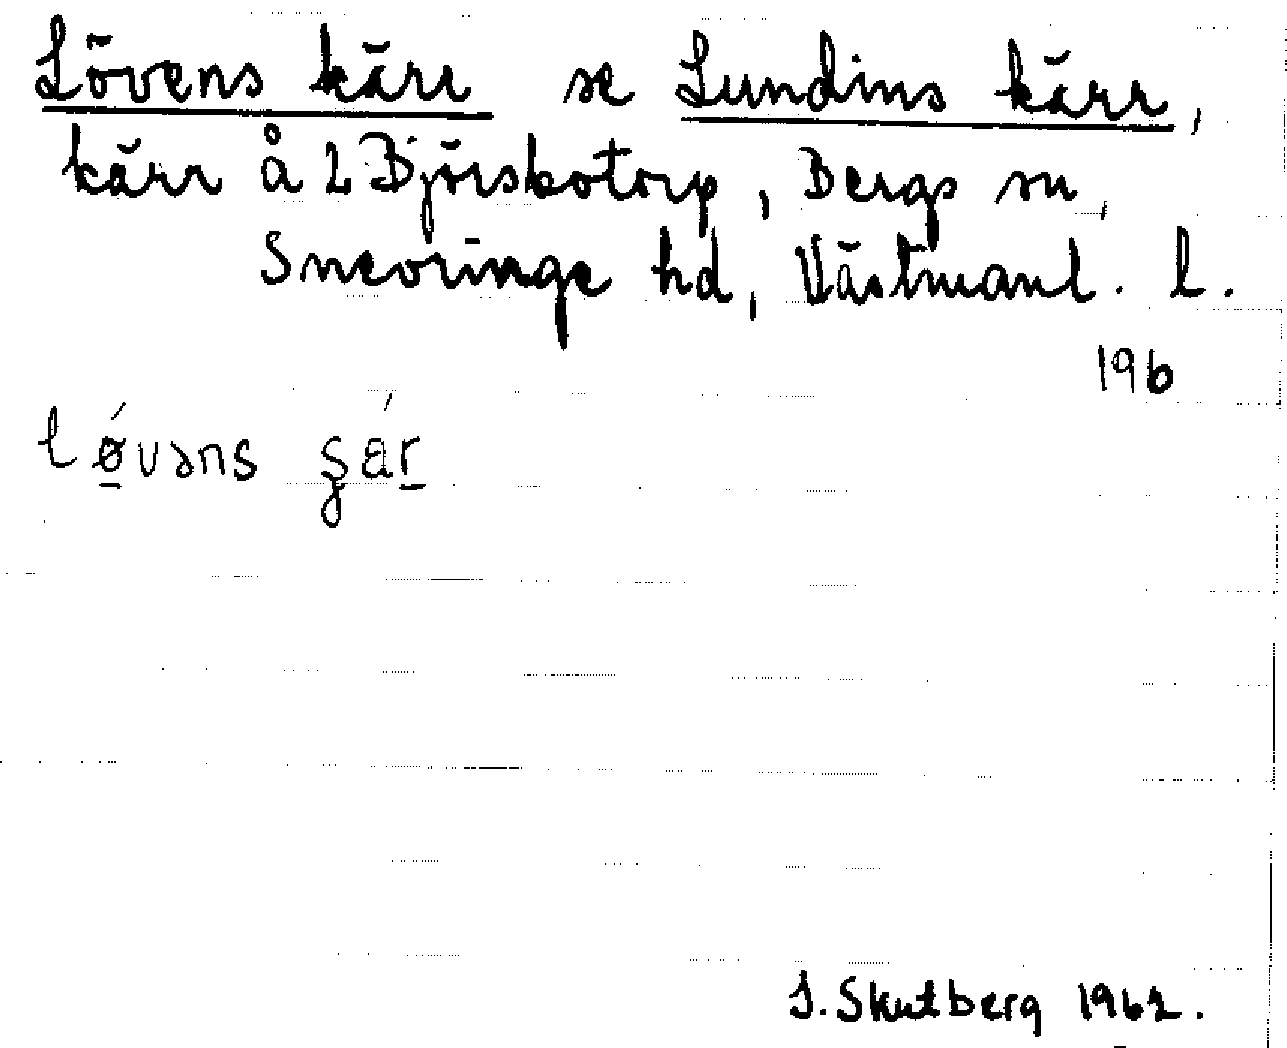 Lövens kärr se Lundins kärr,
kärr å L Björskotorp, Bergs sn,
Snevringe hd, Västmanl. l.
196
lǿvəns şár
J. Skutberg 1962.